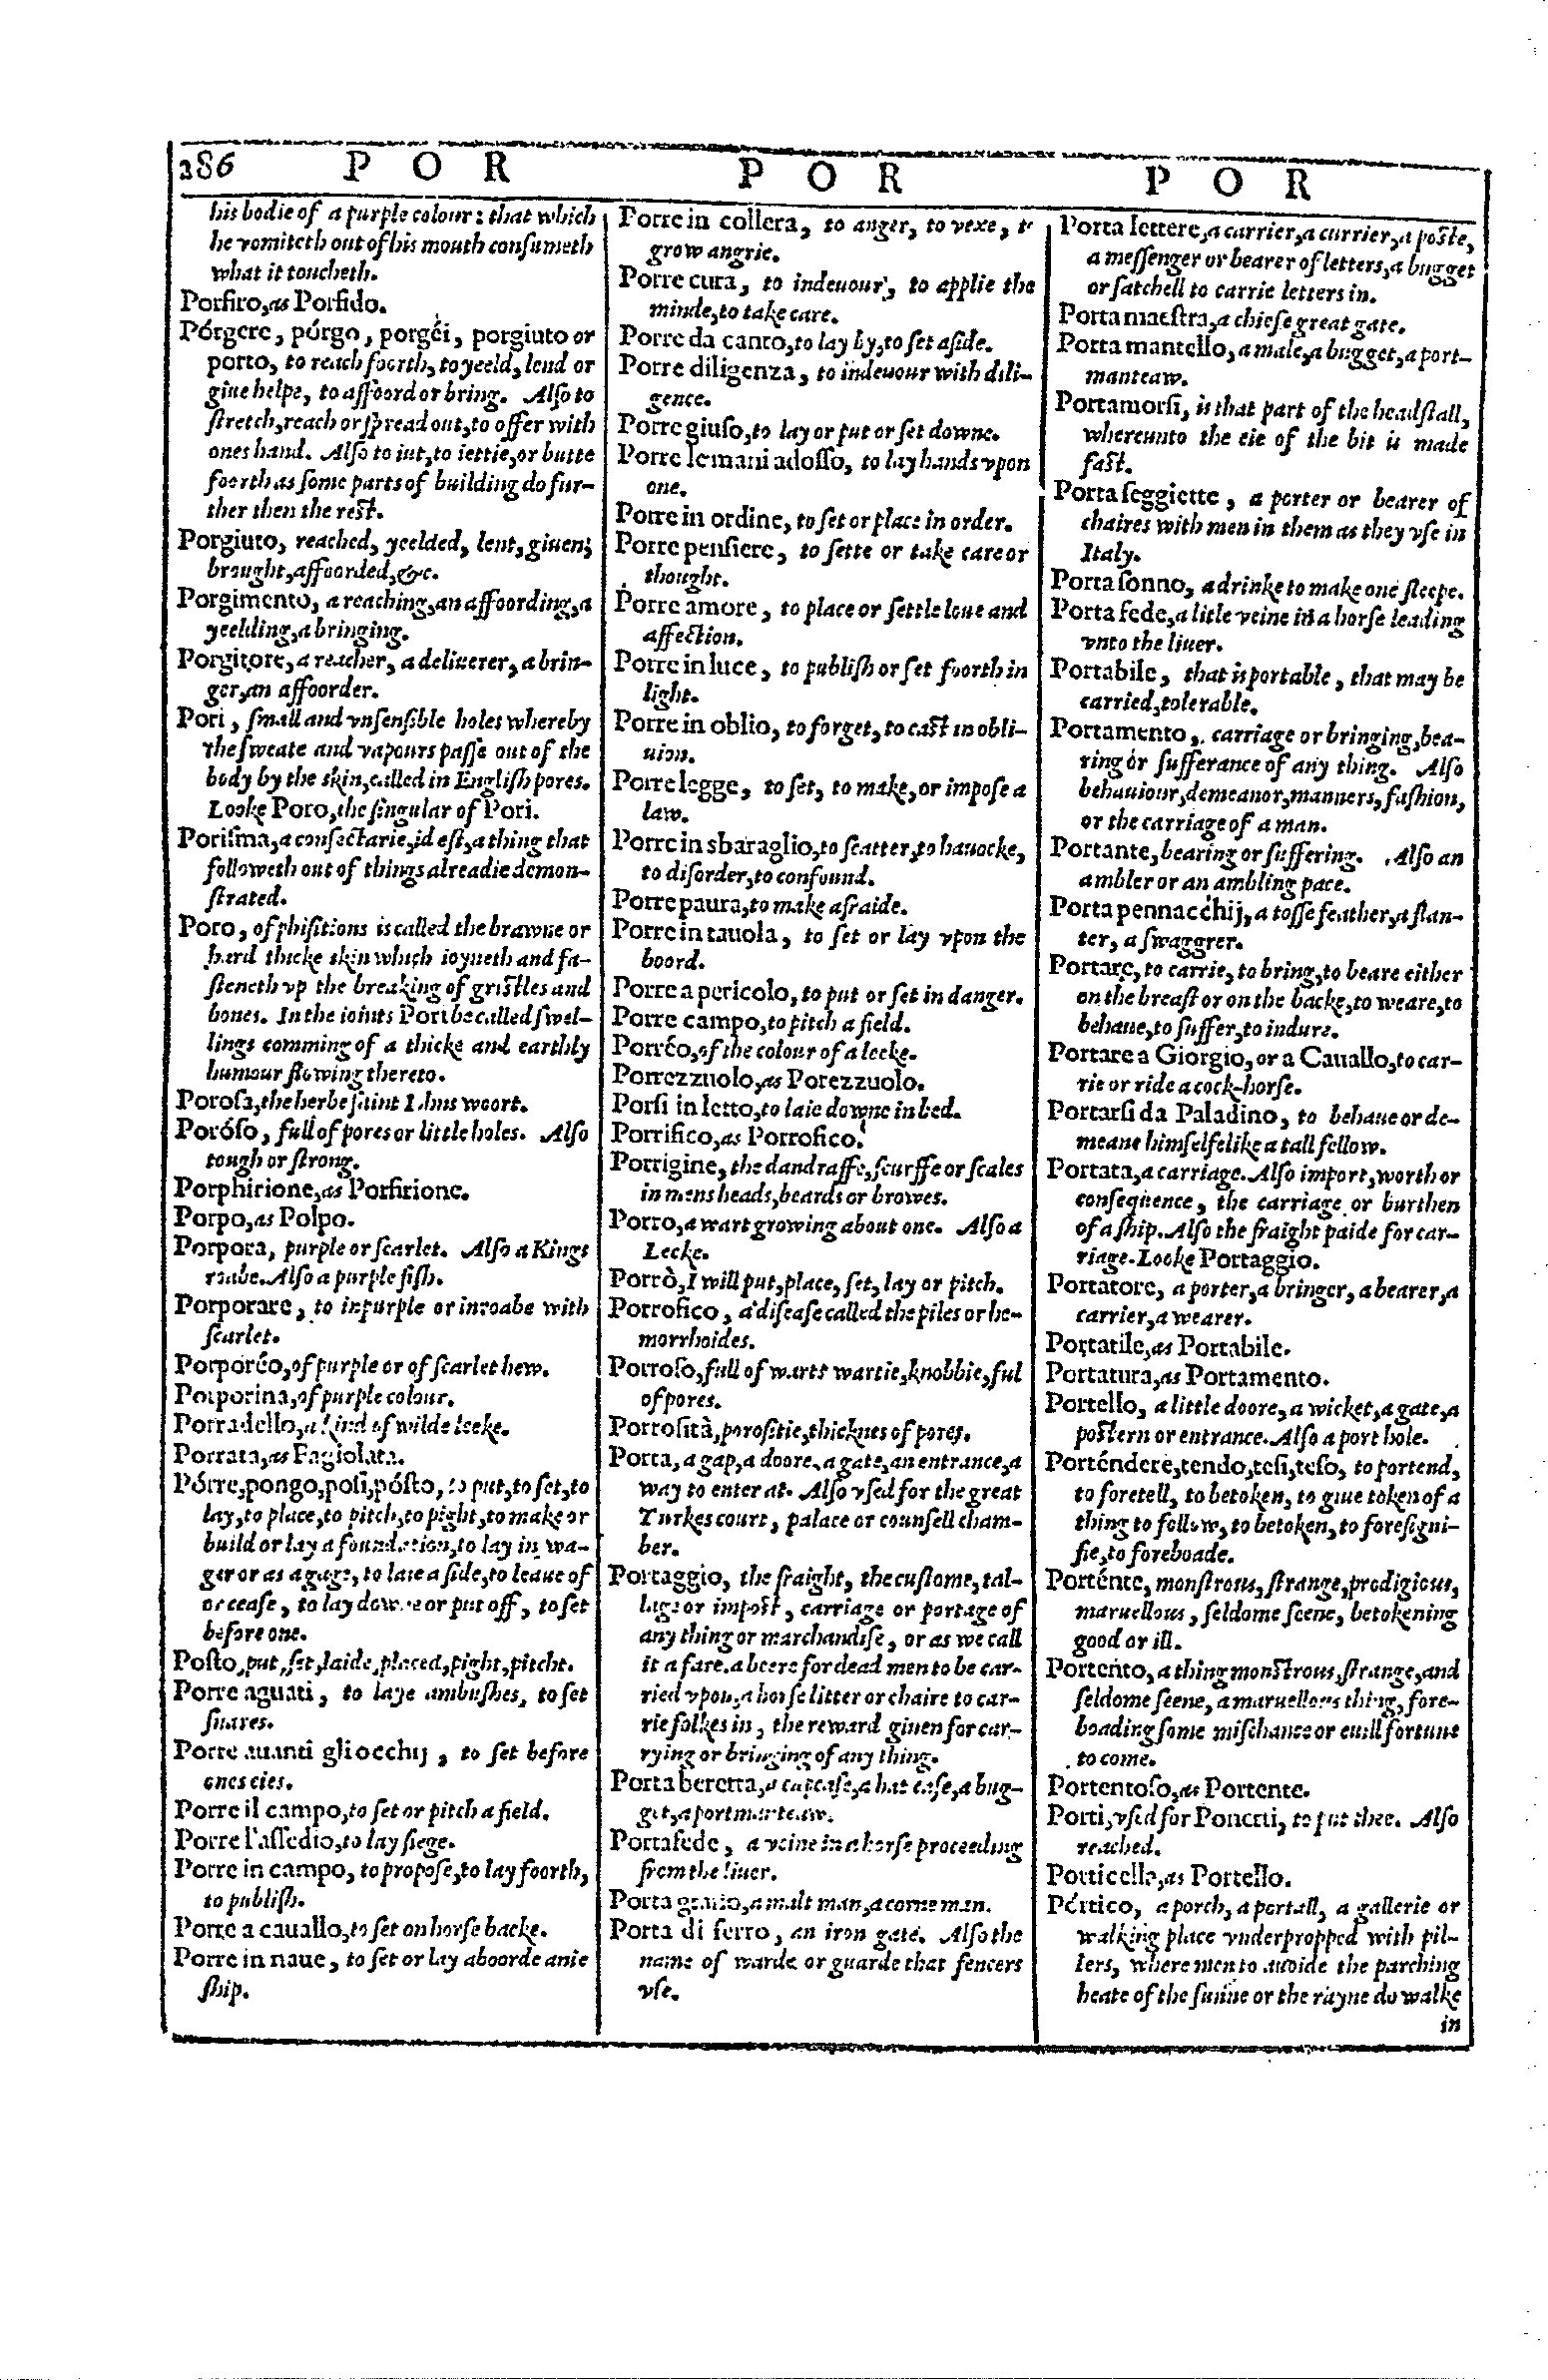 286 P O R P O R P O R
his bodie of a purple colour: that which
he vomiteth out of his mouth consumeth
what it toucheth.
Porfiro, as Porfido.
Pórgere, pórgo, porgéi, porgiuto or
porto, to reach foorth, to yeeld, lend or
giue helpe, to affoord or bring. Also to
ſtretch, reach or ſpread out, to offer with
ones hand. Alſo to iut, to iettie, or butte
foorth as ſome parts of building do fur-
ther then the reſt.
Porgiuto, reached, yeelded, lent, giuen,
brought, affoorded, &c.
Porgimento, a reaching, an affoording, a
yeelding, a bringing.
Porgitore, a reacher, a deliuerer, a brin-
ger, an affoorder.
Pori, ſmall and vnſenſible holes whereby
the ſweate and vapours paſſe out of the
body by the skin, called in Engliſh pores.
Looke Poro, the ſingular of Pori.
Poriſma, a conſectarie, id eſt, a thing that
followeth out of things alreadie demon-
ſtrated.
Poro, of phiſitions is called the brawne or
hard thicke skin which ioyneth and fa-
ſteneth vp the breaking of griſtles and
bones. In the ioints Pori be called ſwel-
lings comming of a thicke and earthly
humour flowing thereto.
Poroſa, the herbe ſaint Iohns woort.
Poróſo, full of pores or little holes. Alſo
tough or ſtrong.
Porphirione, as Porfirione.
Porpo, as Polpo.
Porpora, purple or ſcarlet. Alſo a Kings
roabe. Alſo a purple fiſh.
Porporare, to inpurple or inroabe with
ſcarlet.
Porporéo, of purple or of ſcarlet hew.
Porporina, of purple colour.
Porradello, a kind of wilde leeke.
Porrata, as Fagiolata.
Pórre, pongo, poſi, póſto, to put, to ſet, to
lay, to place, to pitch, to pight, to make or
build or lay a foundation, to lay in wa-
ger or as a gage, to laie aſide, to leaue of
or ceaſe, to lay downe or put off, to ſet
before one.
Poſto, put, ſet, laide, placed, pight, pitcht.
Porre aguati, to laye ambuſhes, to ſet
ſnares.
Porre auanti gliocchij, to ſet before
ones eies.
Porre il campo, to ſet or pitch a field.
Porre l'aſſedio, to lay ſiege.
Porre in campo, to propoſe, to lay foorth,
to publiſh.
Porre a cauallo, to ſet on horſe backe.
Porre in naue, to ſet or lay aboorde anie
ſhip.
Porre in collera, to anger, to vexe, to
grow angrie.
Porre cura, to indeuour, to applie the
minde, to take care.
Porre da canto, to lay by, to ſet aſide.
Porre diligenza, to indeuour with dili-
gence.
Porre giuſo, to lay or put or ſet downe.
Porre le mani adoſſo, to lay hands vpon
one.
Porre in ordine, to ſet or place in order.
Porre penſiere, to ſette or take care or
thought.
Porre amore, to place or ſettle loue and
affection.
Porre in luce, to publiſh or ſet foorth in
light.
Porre in oblio, to forget, to caſt in obli-
uion.
Porre legge, to ſet, to make, or impoſe a
law.
Porre in sbaraglio, to ſcatter, to hauocke,
to diſorder, to confound.
Porre paura, to make afraide.
Porre in tauola, to ſet or lay vpon the
boord.
Porre a pericolo, to put or ſet in danger.
Porre campo, to pitch a field.
Porréo, of the colour of a leeke.
Porrezzuolo, as Porezzuolo.
Porſi in letto, to laie downe in bed.
Porrifico, as Porrofico.
Porrigine, the dandraffe, ſcurffe or ſcales
in mens heads, beards or browes.
Porro, a wart growing about one. Alſo a
Leeke.
Porrò, I will put, place, ſet, lay or pitch.
Porrofico, a diſeaſe called the piles or he-
morrhoides.
Porroſo, full of warts wartie, knobbie, ful
of pores.
Porroſità, poroſitie, thicknes of pores.
Porta, a gap, a doore, a gate, an entrance, a
way to enter at. Alſo vſed for the great
Turkes court, palace or counſell cham-
ber.
Portaggio, the fraight, the cuſtome, tal-
lage or impoſt, carriage or portage of
any thing or marchandiſe, or as we call
it a fare. a beere for dead men to be car-
ried vpon, a horſe litter or chaire to car-
rie folkes in, the reward giuen for car-
rying or bringing of any thing.
Porta beretta, a capcaſe, a hat caſe, a bug-
get, a portmanteaw.
Portafede, a veine in a horſe proceeding
from the liuer.
Porta grano, a malt man, a corne man.
Porta di ferro, an iron gate. Alſo the
name of warde or guarde that fencers
vſe.
Porta lettere, a carrier, a currier, a poſte,
a meſſenger or bearer of letters, a bugget
or ſatchell to carrie letters in.
Porta maeſtra, a chiefe great gate.
Porta mantello, a male, a bugget, a port-
manteaw.
Portamorſi, is that part of the headſtall,
whereunto the eie of the bit is made
faſt.
Porta ſeggiette, a porter or bearer of
chaires with men in them as they vſe in
Italy.
Porta ſonno, a drinke to make one ſleepe.
Porta fede, a litle veine in a horſe leading
vnto the liuer.
Portabile, that is portable, that may be
carried, tolerable.
Portamento, carriage or bringing, bea-
ring or ſufferance of any thing. Alſo
behauiour, demeanor, manners, faſhion,
or the carriage of a man.
Portante, bearing or ſuffering. Alſo an
ambler or an ambling pace.
Porta pennacchij, a toſſe feather, a flan-
ter, a ſwaggrer.
Portare, to carrie, to bring, to beare either
on the breaſt or on the backe, to weare, to
behaue, to ſuffer, to indure.
Portare a Giorgio, or a Cauallo, to car-
rie or ride a cock-horſe.
Portarſi da Paladino, to behaue or de-
meane himſelfe like a tall fellow.
Portata, a carriage. Alſo import, worth or
conſequence, the carriage or burthen
of a ſhip. Alſo the fraight paide for car-
riage. Looke Portaggio.
Portatore, a porter, a bringer, a bearer, a
carrier, a wearer.
Portatile, as Portabile.
Portatura, as Portamento.
Portello, a little doore, a wicket, a gate, a
poſtern or entrance. Alſo a port hole.
Porténdere, tendo, teſi, teſo, to portend,
to foretell, to betoken, to giue token of a
thing to follow, to betoken, to foreſigni-
fie, to foreboade.
Porténte, monſtrous, ſtrange, prodigious,
maruellous, ſeldome ſeene, betokening
good or ill.
Portento, a thing monſtrous, ſtrange, and
ſeldome ſeene, a maruellous thing, fore-
boading ſome miſchance or euill fortune
to come.
Portentoſo, as Portente.
Porti, vſed for Ponerti, to put thee. Alſo
reached.
Porticella, as Portello.
Pórtico, a porch, a portall, a gallerie or
walking place vnderpropped with pil-
lers, where men to auoide the parching
heate of the ſunne or the rayne do walke
in